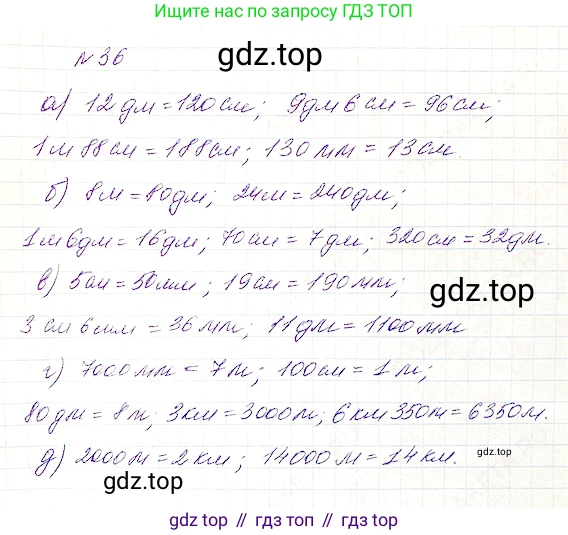 Ищите нас по запросу ГДЗ ТОП
№36
gdz.top
а) 12 дм = 120 см; 9дм 6 см = 96 см;
1 м 88 см = 188 см; 130 мм = 13 см.
б) 8 м = 80 дм; 24 м = 240 дм;
1 м 6 дм = 16 дм; 70 см = 7 дм; 320 см = 32 дм.
в) 5 см = 50 мм; 19 см = 190 мм;
gdz.top
3 см 6 мм = 36 мм; 11 дм = 1100 мм
г) 7000 мм = 7 м; 100 см = 1 м;
80 дм = 8 м; 3 км = 3000 м; 6 км 350 м = 6350 м.
д) 2000 м = 2 км; 14000 м = 14 км.
gdz.top
gdz.top
gdz top // гдз топ // gdz.top